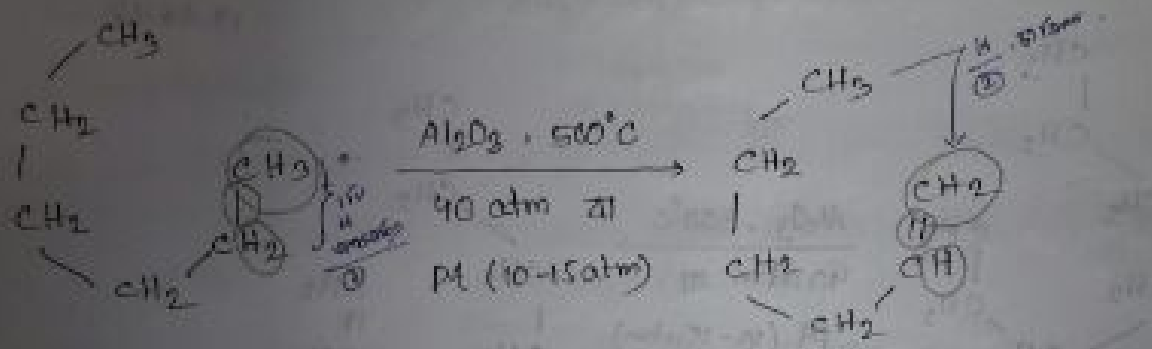 CH3
CH2
CH2
CH2
CH2
CH3
①
Al2O3, 500°C
40 atm या
Pt (10-15atm)
CH3
H
②
CH2
CH2
CH2
CH2
CH